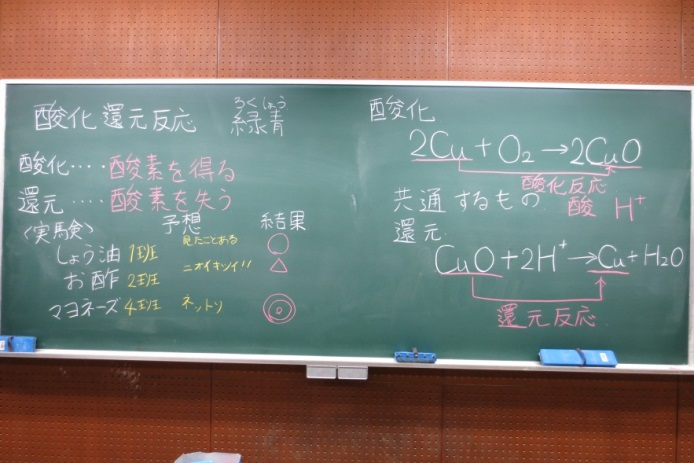 酸化還元反応 緑青
ろくしょう
酸化‥‥酸素を得る
還元‥‥酸素を失う
〈実験〉 予想 結果
しょう油 1班 見たことある ○
お酢 2班 ニオイキツイ!! △
マヨネーズ 4班 ネットリ ◎
酸化
2Cu+O₂→2CuO
酸化反応
共通するもの 酸 H⁺
還元
CuO+2H⁺→Cu+H₂O
還元反応